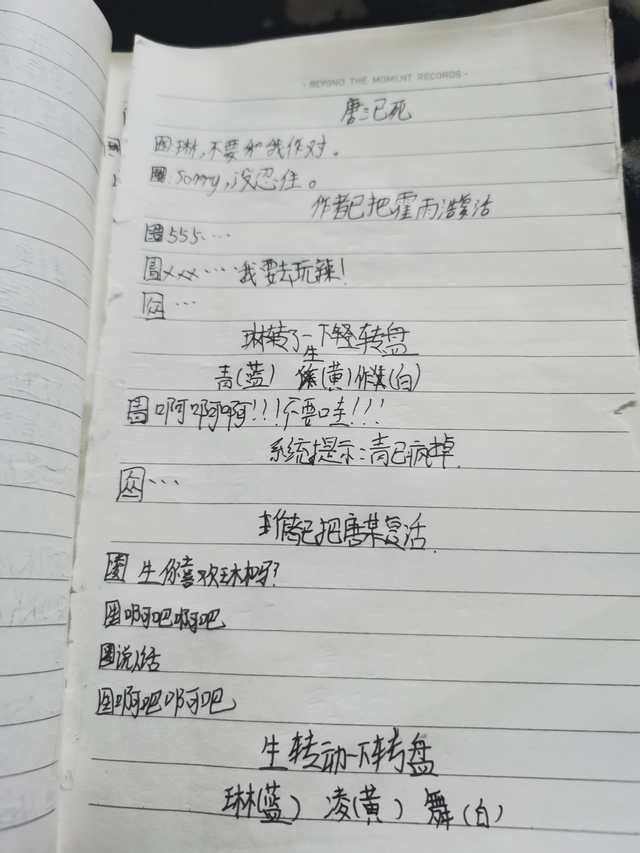 · BEYOND THE MOMENT RECORDS ·
唐三已死
琳,不要和我作对。
:sorry,没忍住。
作者已把霍雨浩复活
555…
xxx…我要去玩辣!
众…
琳转了一下轻转盘
生
青(蓝) (黄) (白)
啊啊啊!!!不要哇!!!
系统提示:青已疯掉.
众…
作者已把唐某复活.
生你喜欢琳吗?
生啊吧啊吧
说人话
生啊吧啊吧
生转动一下转盘
琳(蓝) 凌(黄) 舞(白)